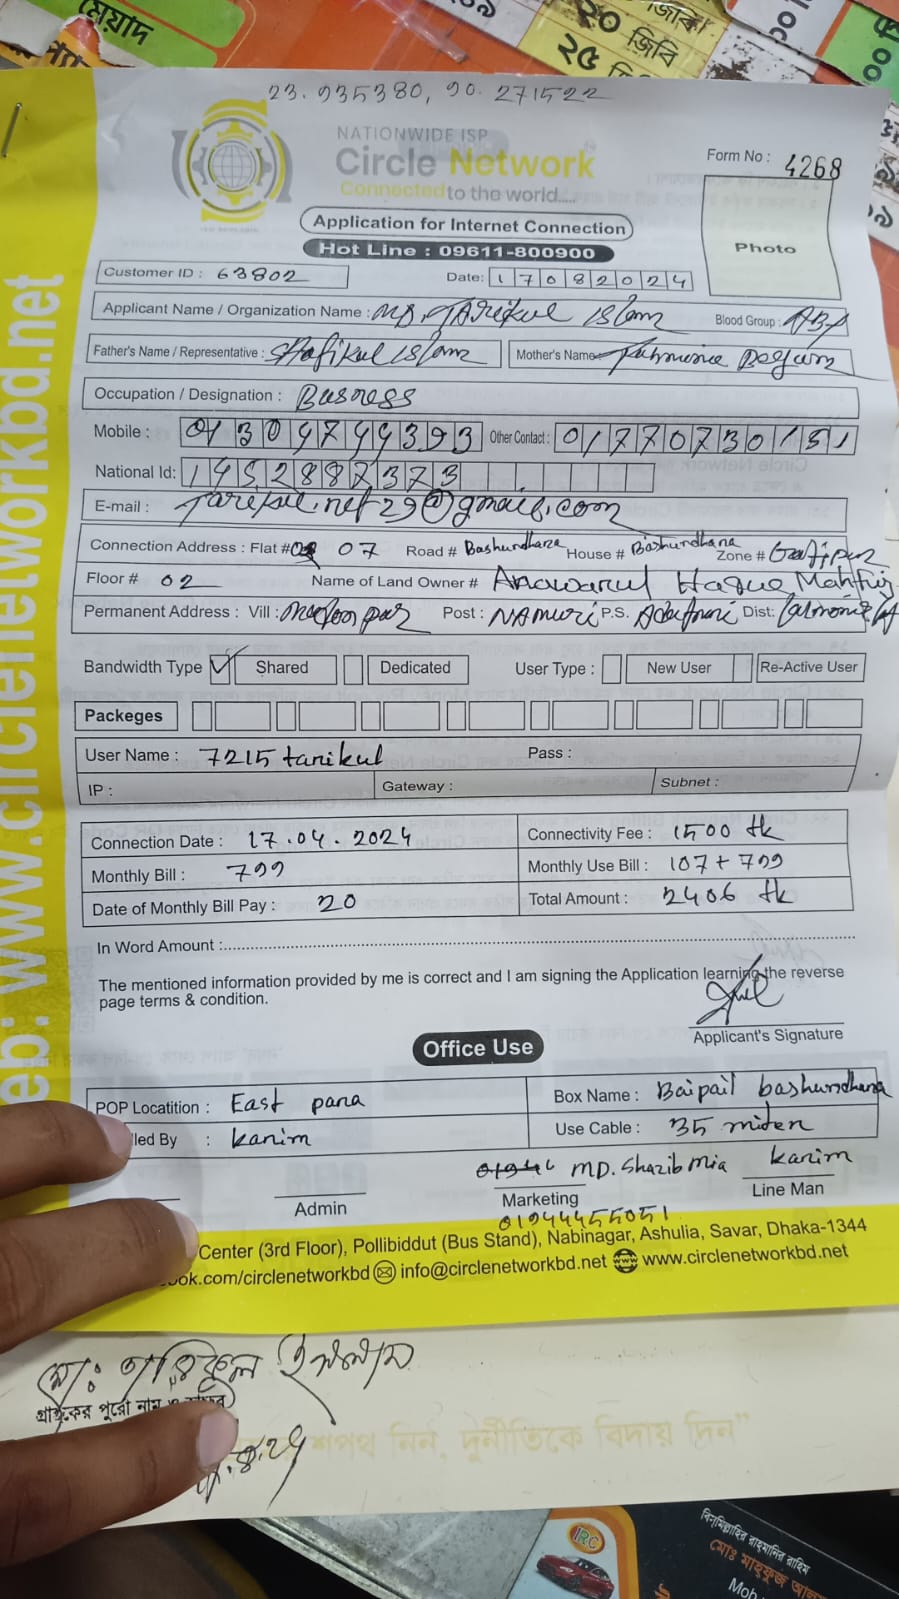 মেয়াদ
২০ জিবি
২৫ জিবি
23.935380, 90.271522
NATIONWIDE ISP
Circle Network
Connected to the world.....
Form No : 4268
Application for Internet Connection
Photo
Hot Line : 09611-800900
Customer ID : 63802 Date: 17082024
Applicant Name / Organization Name : MD. TARikul ISlam Blood Group :
Father's Name / Representative : Shafikul ISlam Mother's Name Begum
Occupation / Designation : Busness
Mobile : 01304744393 Other Contact : 01770730151
National Id: 1452887373
E-mail : Tarikul.net29@gmail.com
Connection Address : Flat # 07 Road # Bashundhana House # Bashundhana Zone # Gazipur
Floor # 02 Name of Land Owner # Anawarul Haque Mahfuj
Permanent Address : Vill : Post : NAMURi P.S. Dist:
Bandwidth Type Shared Dedicated User Type : New User Re-Active User
Packeges
User Name : 7215tanikul Pass :
IP : Gateway : Subnet :
Connection Date : 17.04.2024 Connectivity Fee : 1500 tk
Monthly Bill : 799 Monthly Use Bill : 107+799
Date of Monthly Bill Pay : 20 Total Amount : 2406 tk
In Word Amount :
The mentioned information provided by me is correct and I am signing the Application learning the reverse
page terms & condition.
Applicant's Signature
Office Use
POP Locatition : East pana Box Name : Baipail bashundhana
led By : kanim Use Cable : 35 miten
MD. Shazib Mia kanim
Admin Marketing Line Man
01944455051
Center (3rd Floor), Pollibiddut (Bus Stand), Nabinagar, Ashulia, Savar, Dhaka-1344
ook.com/circlenetworkbd info@circlenetworkbd.net www.circlenetworkbd.net
eb: www.circlenetworkbd.net
মো: তারিকুল ইসলাম
গ্রাহকের পুরো নাম ও
শপথ নিন, দুর্নীতিকে বিদায় দিন"
IRC
বিস্‌মিল্লাহির রাহমানির রাহিম
মোঃ মাহফুজ আলম
Mob